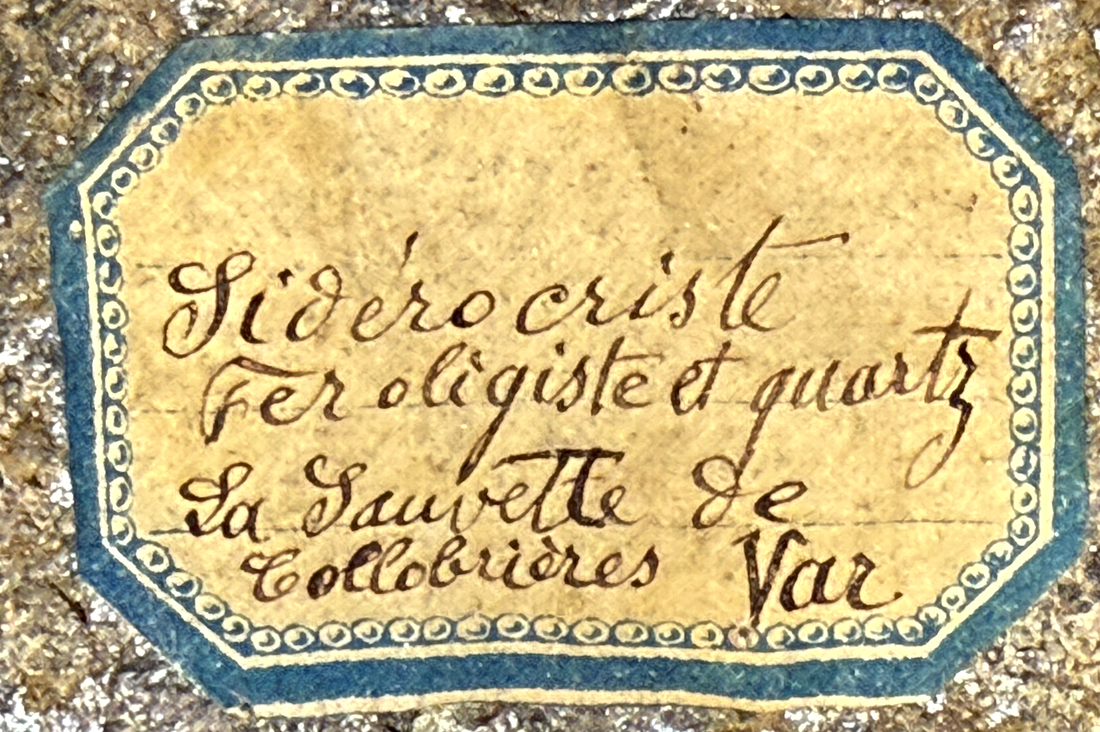 Sidérocriste
Fer oligiste et quartz
La Sauvette de
Collobrières Var